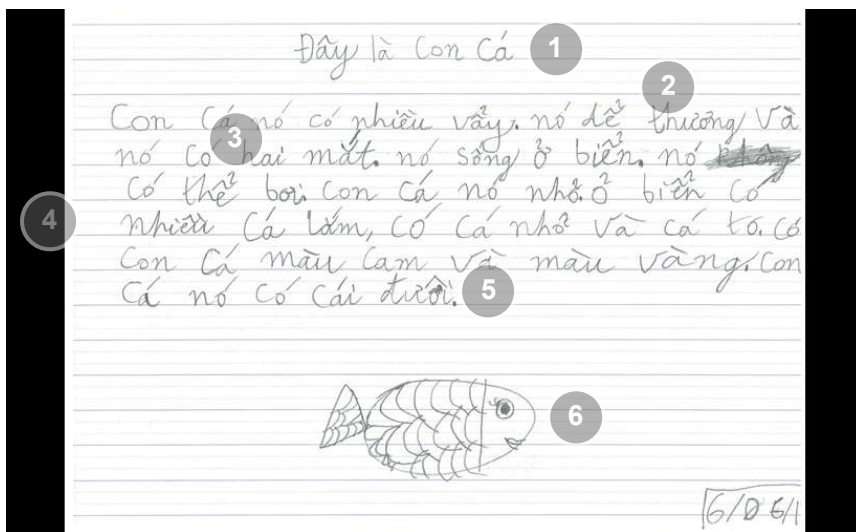 Đây là Con Cá 1
2
Con Cá nó có nhiều vẩy. nó dể thương Và
3
nó Có hai mắt. nó sống ở biển. nó
Có thể bơi. Con Cá nó nhỏ. ở biển Có
4
nhiều Cá lắm, Có Cá nhỏ Và cá to. Có
Con Cá màu Cam Và màu Vàng. Con
Cá nó Có Cái đuôi. 5
6